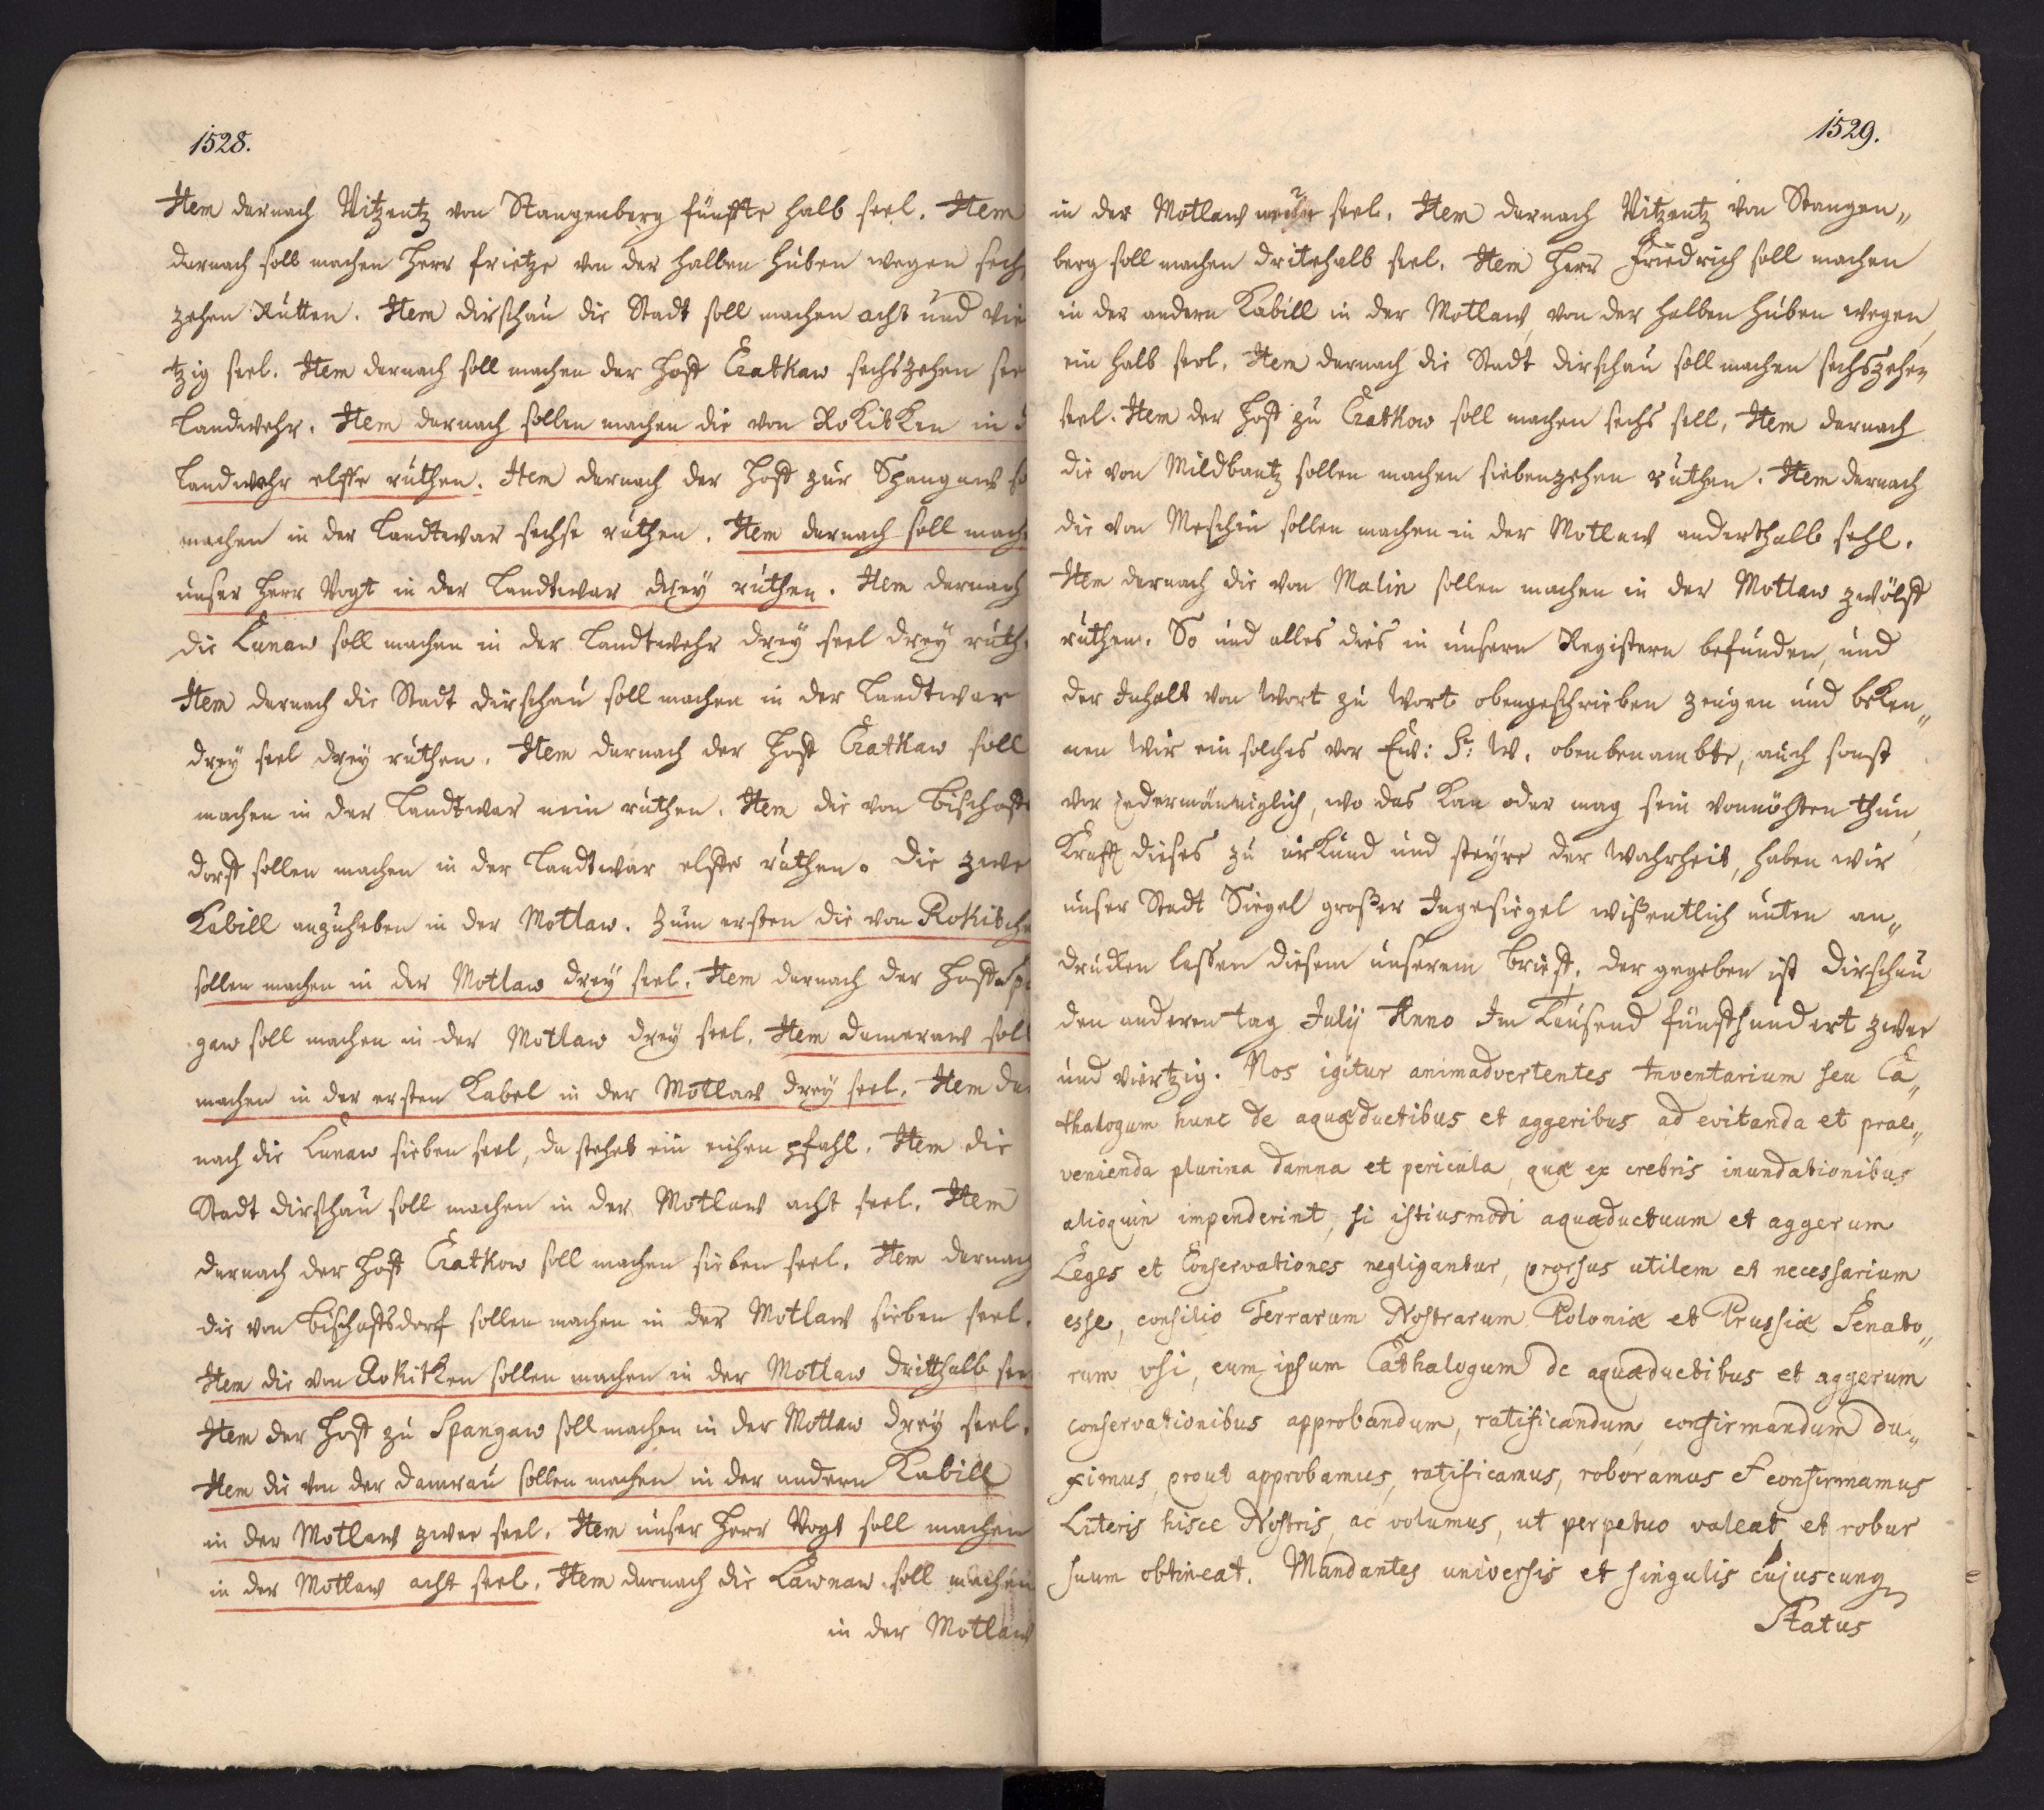 1528.
Item darnach Vitzentz von Stangenberg fünffte halb seel. Item
darnach soll machen Herr frietze von der halben Huben wegen sech
zehen Rutten. Item dirschau die Stadt soll machen acht und vie
tzig seel. Item darnach soll machen der Hoff Czatkaw sechszehen see
Landwehr. Item darnach sollen machen die von Rokitken in d
Landwehr elffe ruthen. Item darnach der Hoff zur Spangaw so
machen in der Landtwar sechse ruthen. Item darnach soll mach
unser Herr Vogt in der Landtwar drey ruthen. Item darnach
die Lunaw soll machen in der Landtwehr drey seel drey ruth
Item darnach die Stadt dirschau soll machen in der Landtwar
drey seel drey ruthen. Item darnach der Hoff Czatkaw soll
machen in der Landtwar nein ruthen. Item die von Bischoffs
dorff sollen machen in der Landtwar elffe ruthen. die zwe
Kabill anzuheben in der Motlaw. Zum ersten die von Rokitsche
sollen machen in der Motlaw drey seel. Item darnach der Hoff Spa
gaw soll machen in der Motlaw drey seel. Item dameraw soll
machen in der ersten Kabel in der Motlaw drey seel. Item dar
nach die Lunaw sieben seel, da stehet ein eichen pfahl. Item die
Stadt dirschau soll machen in der Motlaw acht seel. Item
darnach der Hoff Czatkow soll machen sieben seel. Item darnach
die von Bischoffsdorf sollen machen in der Motlaw sieben seel.
Item die von Rokitken sollen machen in der Motlaw dritthalb see
Item der Hoff zu Spangaw soll machen in der Motlaw drey seel.
Item die von der damrau sollen machen in der andern Kabill
in der Motlaw zwee seel. Item unser Herr Vogt soll machen
in der Motlaw acht seel. Item darnach die Lawnaw soll machen
in der Motlaw
1529.
in der Motlaw seel. Item darnach Vitzentz von Stangen„
berg soll machen dritehalb seel. Item Herr Friedrich soll machen
in der andern Kabill in der Motlaw, von der halben Huben wegen,
ein halb seel. Item darnach die Stadt dirschau soll machen sechszehen
seel. Item der Hoff zu Czatkow soll machen sechs sell, Item darnach
die von Mildbantz sollen machen siebenzehen ruthen. Item darnach
die von Meschin sollen machen in der Motlaw anderthalb sehl.
Item darnach die von Malin sollen machen in der Motlaw zwölff
ruthen. So und alles dies in unsern Registern befunden, und
der Inhalt von Wort zu Wort obengeschrieben zeugen und beken„
nen Wir ein solches vor Ew: Hr: W. obenbenambte, auch sonst
vor jedermänniglich, wo das kan oder mag sein vonnöhten thun,
Krafft dieses zu urkund und steyre der Wahrheit, haben wir
unser Stadt Siegel großer Ingesiegel wißentlich unten an„
drucken lassen diesem unserem brieff, der gegeben ist dirschau
den anderen tag July Anno Im Tausend fünffhundert zwee
und viertzig. Nos igitur animadvertentes Inventarium seu Ca„
thalogum hunc de aquæductibus et aggeribus ad evitanda et præ„
venienda plurima damna et pericula, quæ ex crebris inundationibus
alioquin impenderint, si istiusmodi aquæductuum et aggerum
Leges et Conservationes negligantur, prorsus utilem et necessarium
esse, consilio Terrarum Nostrarum Poloniæ et Prussiæ Senato„
rum usi, eum ipsum Cathalogum de aquæductibus et aggerum
conservationibus approbandum, ratificandum, confirmandum du„
ximus, prout approbamus, ratificamus, roboramus et confirmamus
Literis hisce Nostris, ac volumus, ut perpetuo valeat et robur
suum obtineat. Mandantes universis et singulis cujuscunq
Status